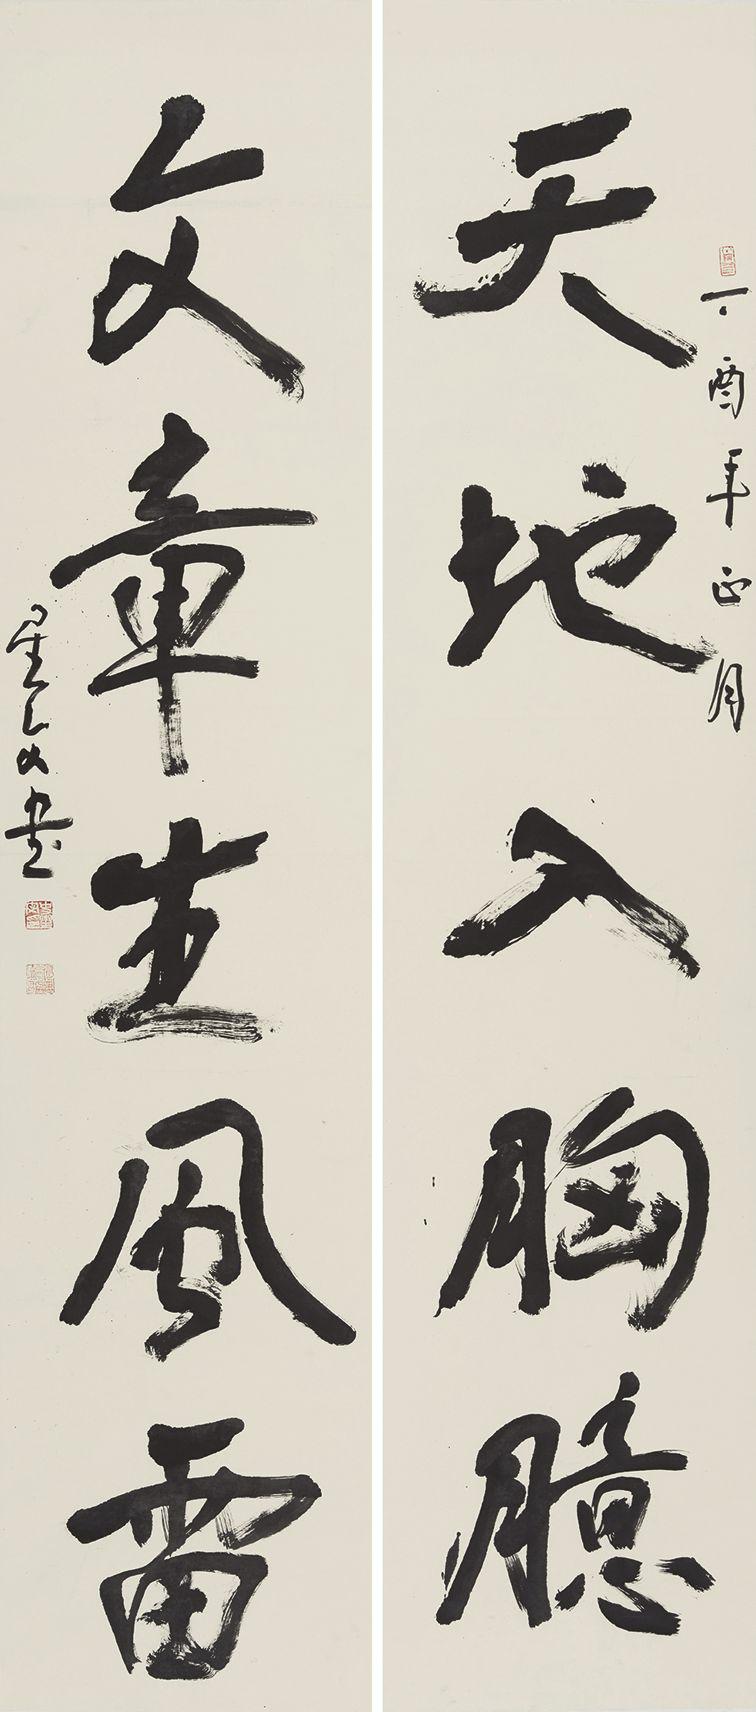 丁酉年正月
天地入胸臆
文章生風雷
星文書